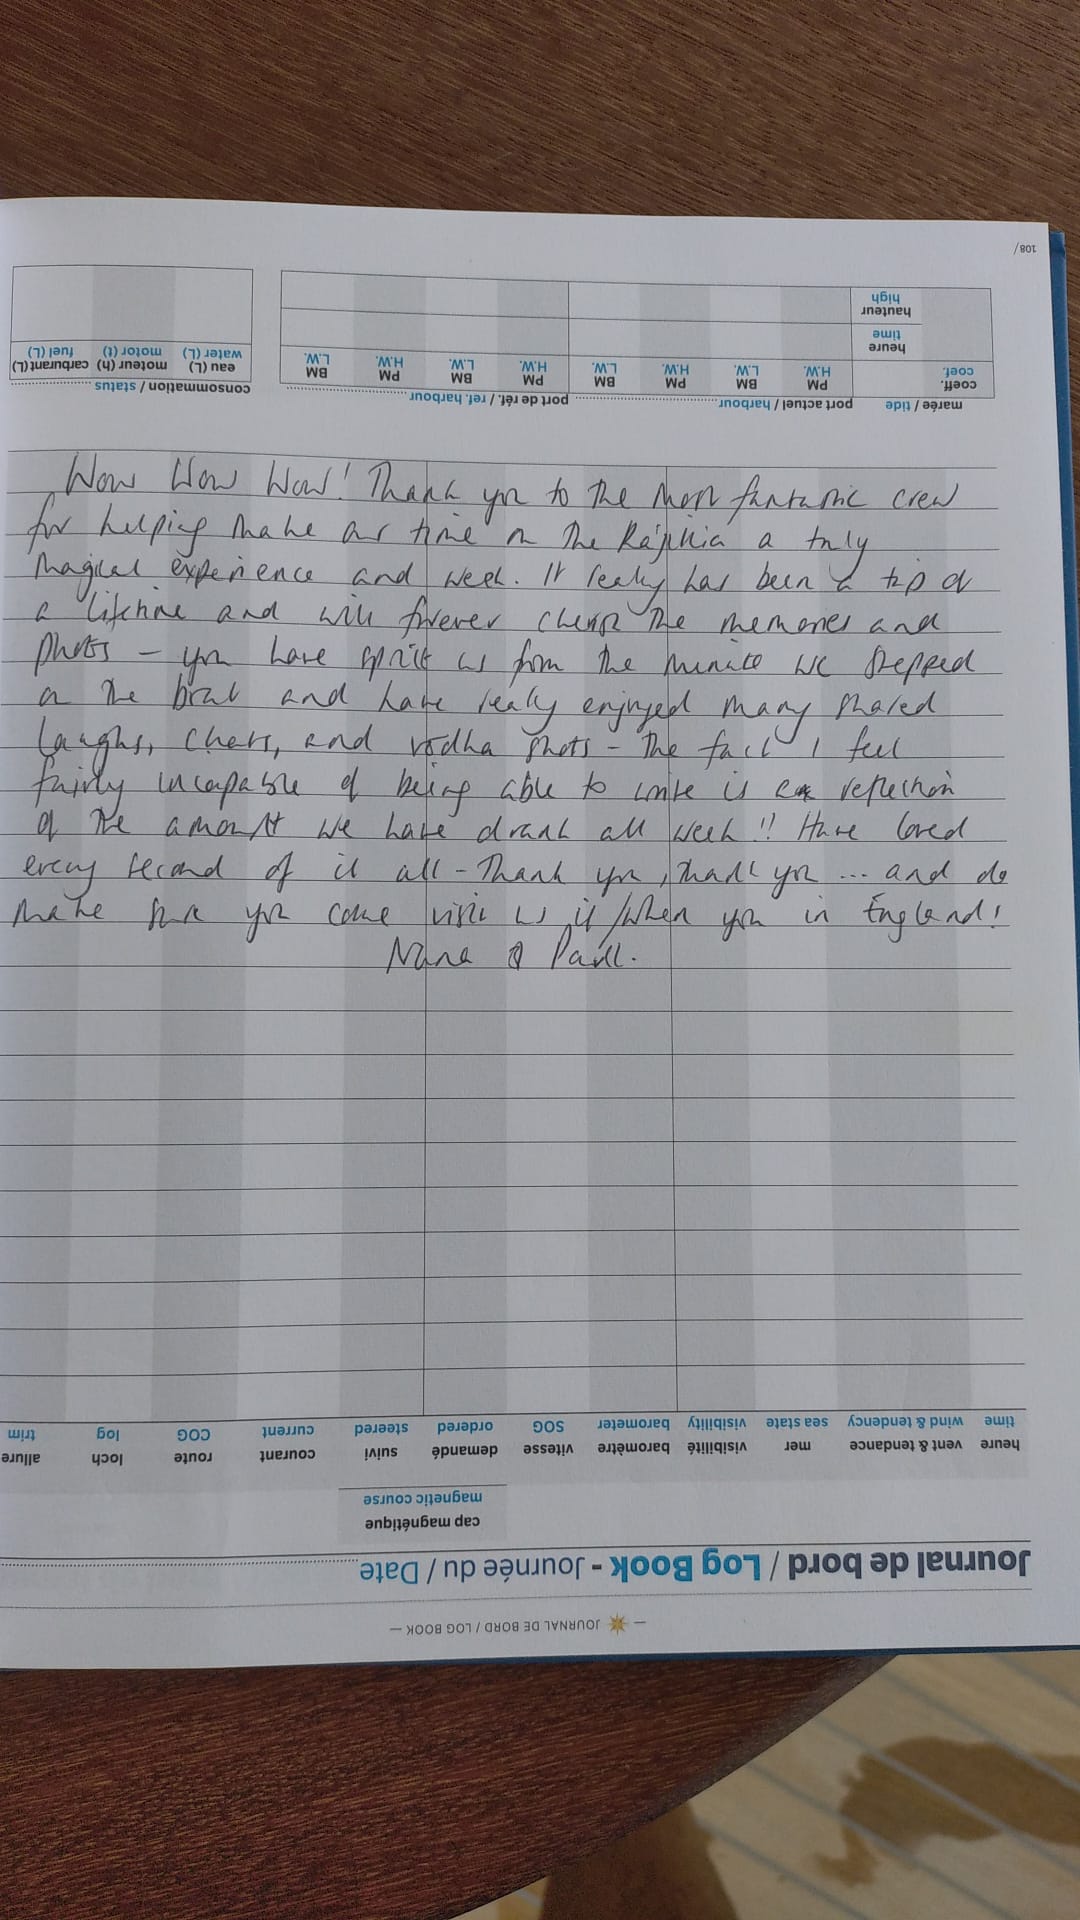 108/
marée / tide port actuel / harbour port de réf. / ref. harbour consommation / status
coeff. PM BM PM BM PM BM PM BM eau (L) moteur (h) carburant (L)
coef. H.W. L.W. H.W. L.W. H.W. L.W. H.W. L.W. water (L) motor (t) fuel (L)
heure
time
hauteur
high
Wow Wow Wow! Thank you to the most fantastic crew
for helping make our time on the a truly
magical experience and week. It really has been a trip of
a lifetime and will forever cherish the memories and
photos – you have spoilt us from the minute we stepped
on the boat and have really enjoyed many shared
laughs, chats, and vodka shots – the fact I feel
fairly incapable of being able to write is a reflection
of the amount we have drank all week!! Have loved
every second of it all – Thank you, thank you ... and do
make sure you come visit us if/when you in England!
& Paul.
— JOURNAL DE BORD / LOG BOOK —
Journal de bord / Log Book - Journée du / Date
cap magnétique
magnetic course
heure vent & tendance mer visibilité baromètre vitesse demandé suivi courant route loch allure
time wind & tendency sea state visibility barometer SOG ordered steered current COG log trim